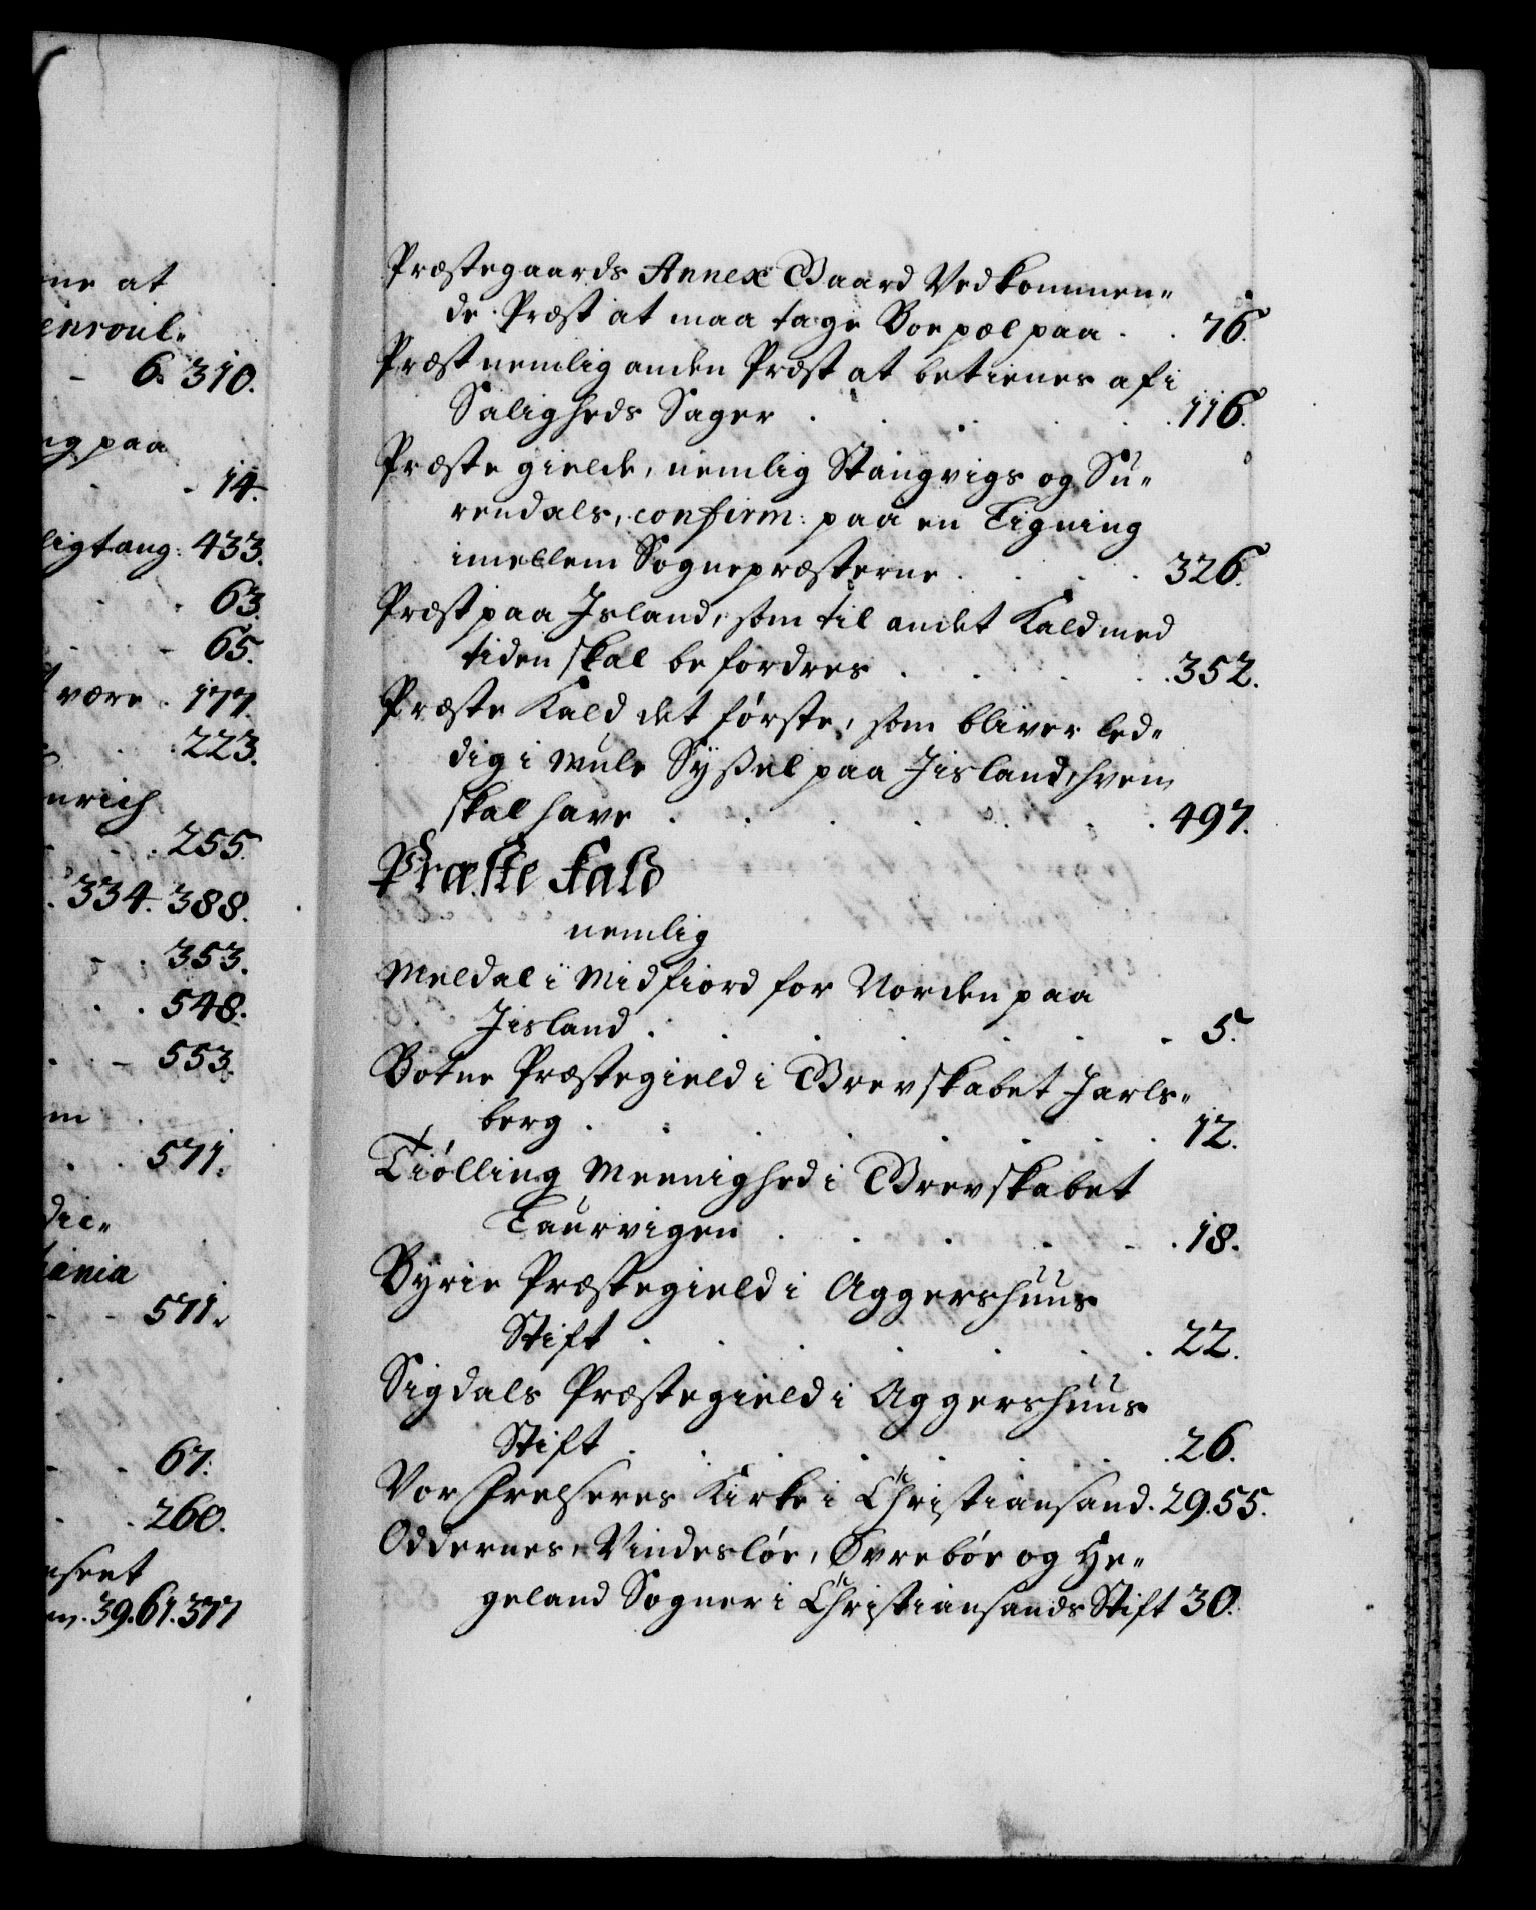 ne at
enroul-
- 6. 310.
ng paa
- 14.
ligtang: 433.
63.
- 65.
være . 177.
223.
nrich
255.
334. 388.
- 353.
548.
- 553.
m
571.
die-
ania
- 571.
67.
260.
nsent
39.61.377
Præstegaards Annex Gaard Vedkommen-
de Præst at maa tage Boepæl paa . . 76.
Præst nemlig anden Præst at betienes af i
Saligheds Sager . . . . . 116.
Præste gielde, nemlig Stangvigs og Su-
rendals, confirm: paa en Ligning
imellem Sognepræsterne . . . 326.
Præst paa Jsland, som til andet Kald med
tiden skal befordres . . . . 352.
Præste Kald det første, som bliver led-
dig i Mule Syßel paa Jisland, hvem
skal have . . . . . . 497.
Præste Kald
nemlig
Meldal i Midfiord for Norden paa
Jisland . . . . . . . 5.
Botne Præstegield i Grevskabet Jarls-
berg . . . . . . . 12.
Tiølling Meenighed i Grevskabet
Laurvigen . . . . . . 18.
Byrie Præstegield i Aggershuus
Stift . . . . . . 22.
Sigdals Præstegield i Aggershuus
Stift . . . . . . 26.
Vor Frelseres Kirke i Christiansand. 29.55.
Oddernes, Vindesløe, Øvrebøe og He-
geland Sogner i Christiansands Stift 30.